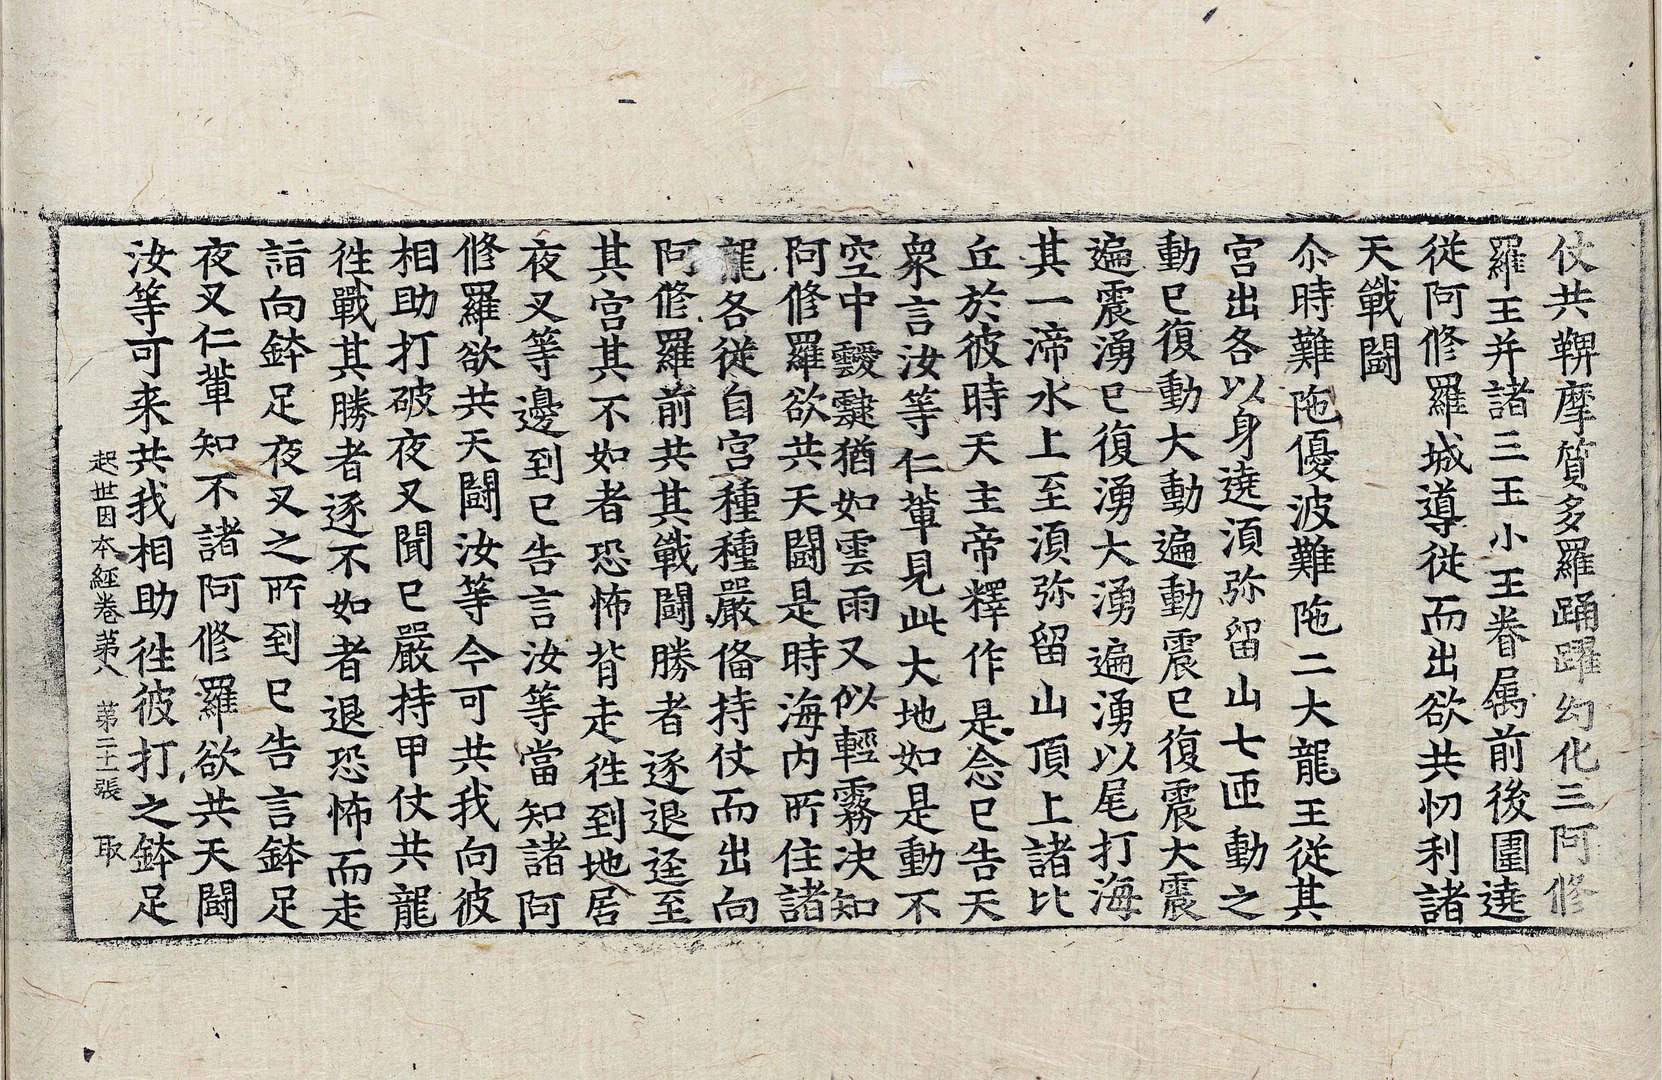 仗共鞞摩質多羅踊躍幻化三阿修
羅王并諸三王小王眷属前後圍遶
従阿修羅城導従而出欲共忉利諸
天戰鬪
尒時難陁優波難陁二大龍王従其
宮出各以身遶湏弥留山七匝動之
動已復動大動遍動震已復震大震
遍震湧已復湧大湧遍湧以尾打海
其一渧水上至湏弥留山頂上諸比
丘於彼時天主帝釋作是念已告天
衆言汝等仁輩見此大地如是動不
空中靉靆猶如雲雨又似輕霧决知
阿修羅欲共天鬪是時海内所住諸
龍各従自宮種種嚴俻持仗而出向
阿修羅前共其戰鬪勝者逐退逕至
其宮其不如者恐怖背走徃到地居
夜叉等邊到已告言汝等當知諸阿
修羅欲共天鬪汝等今可共我向彼
相助打破夜叉聞已嚴持甲仗共龍
徃戰其勝者逐不如者退恐怖而走
詣向鉢足夜叉之所到已告言鉢足
夜叉仁輩知不諸阿修羅欲共天鬪
汝等可来共我相助徃彼打之鉢足
起世因本經卷第八 第二十一張 取